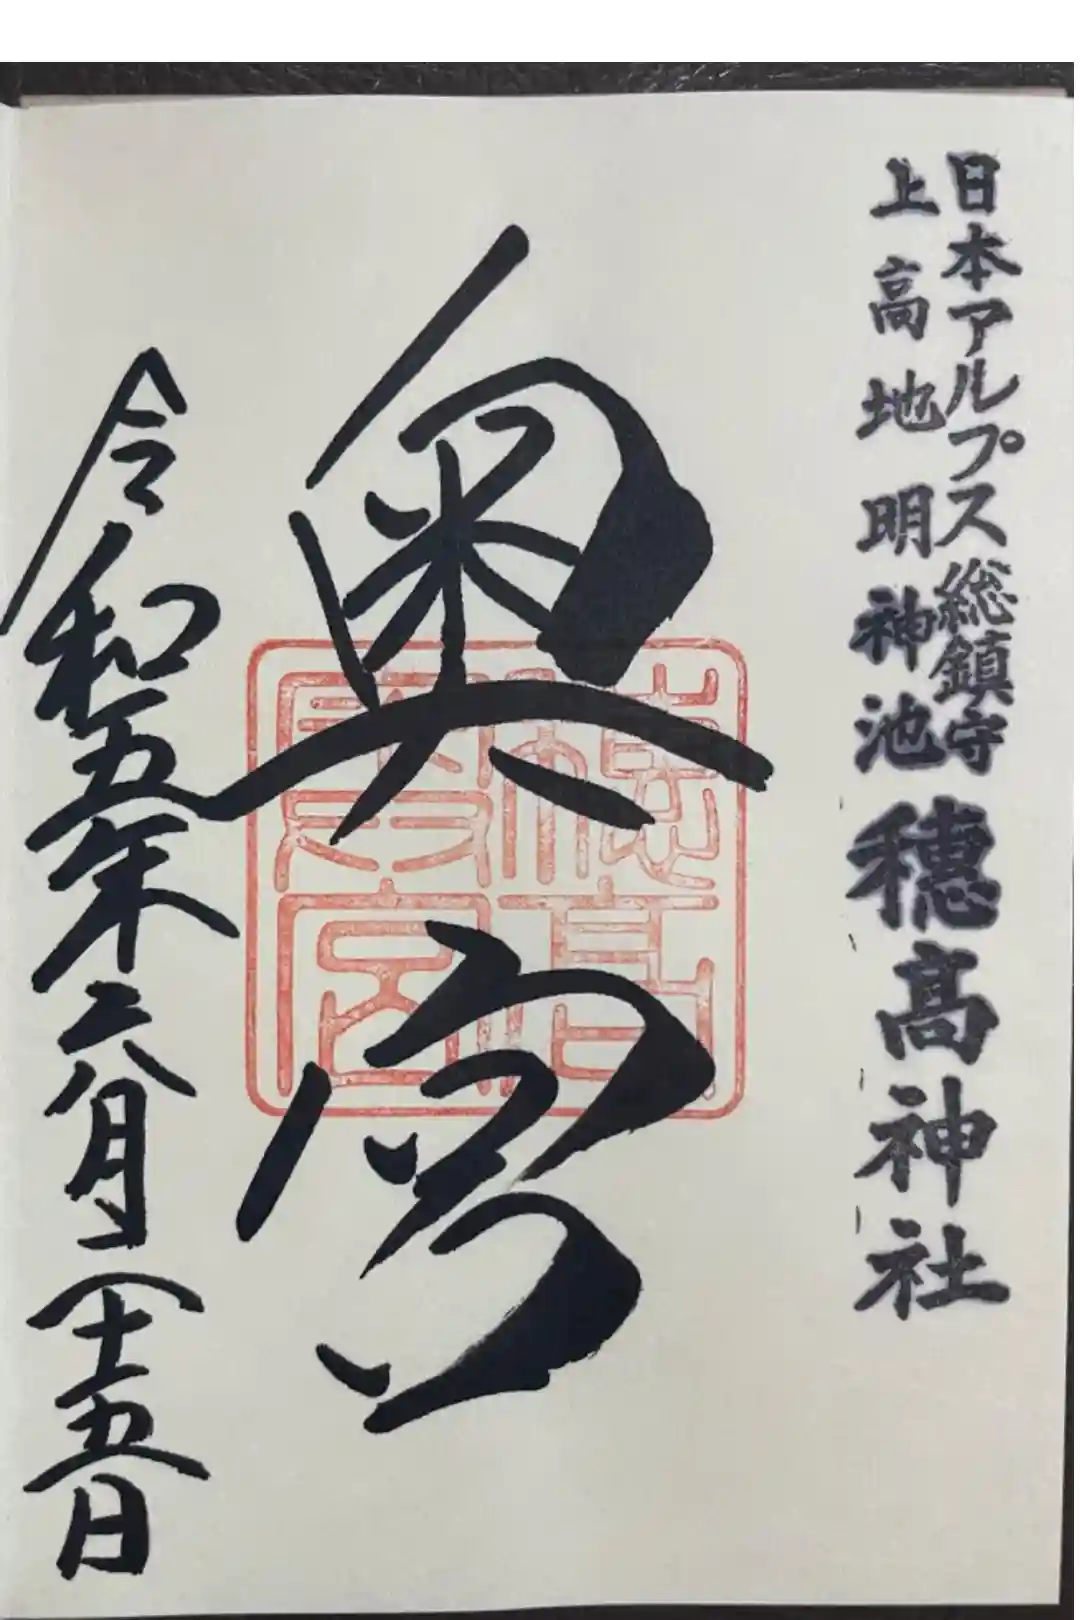 日本アルプス総鎮守
上高地明神池
穂髙神社
奥宮
令和五年六月十五日